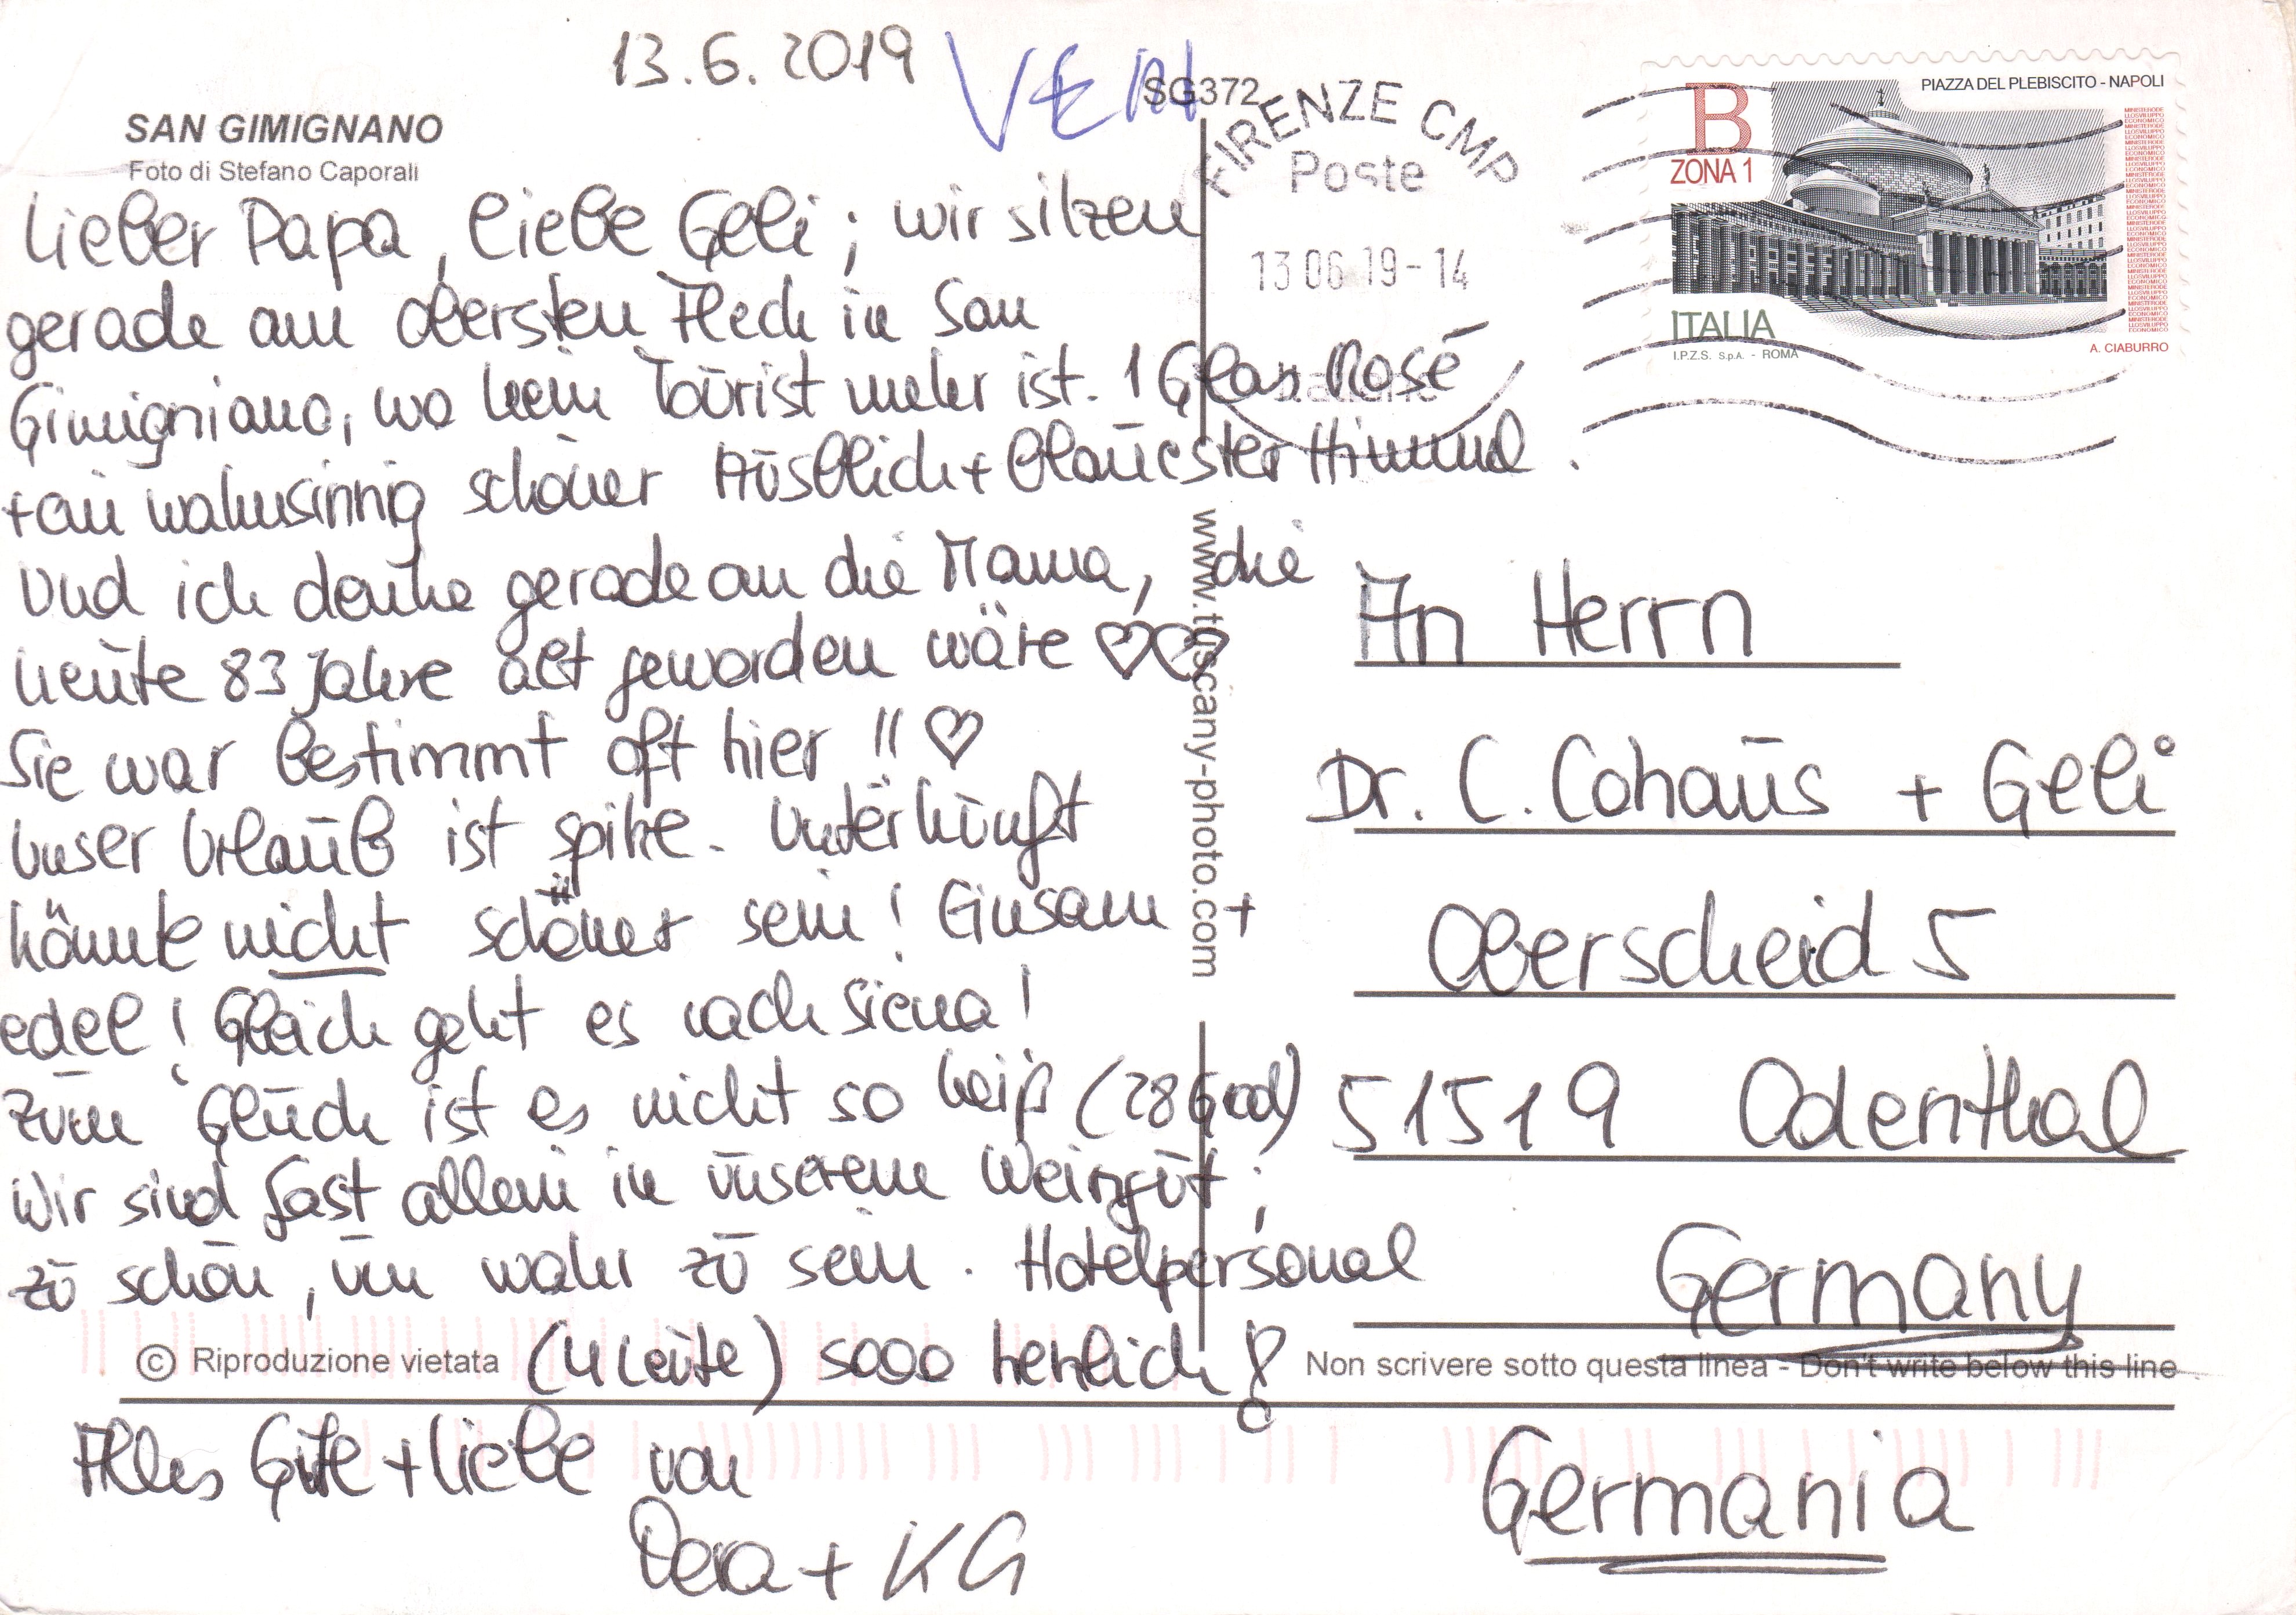 13.6.2019
VEN
SG372
SAN GIMIGNANO
Foto di Stefano Caporali
FIRENZE CMP
Poste
13 06 19-14
B
ZONA 1
PIAZZA DEL PLEBISCITO - NAPOLI
ITALIA
I.P.Z.S. S.p.A. - ROMA
A. CIABURRO
Lieber Papa, liebe Geli; wir sitzen
gerade am obersten Fleck in San
Gimigniano, wo kein Tourist mehr ist. 1 Glas Rosé
+ ein wahnsinnig schöner Ausblick + blauester Himmel.
Und ich denke gerade an die Mama, die
heute 83 Jahre alt geworden wäre ♡♡
Sie war bestimmt oft hier !! ♡
Unser Urlaub ist spitze. Unterkunft
könnte nicht schöner sein! Einsam +
edel! Gleich geht es nach Siena!
Zum Glück ist es nicht so heiß (28 Grad)
Wir sind fast allein in unserem Weingut;
zu schön, um wahr zu sein. Hotelpersonal
(4 Leute) sooo herzlich!
Alles Gute + Liebe von
Vera + KG
www.tuscany-photo.com
An Herrn
Dr. C. Cohaus + Geli
Oberscheid 5
51519 Odenthal
Germany
© Riproduzione vietata
Non scrivere sotto questa linea - Don't write below this line
Germania